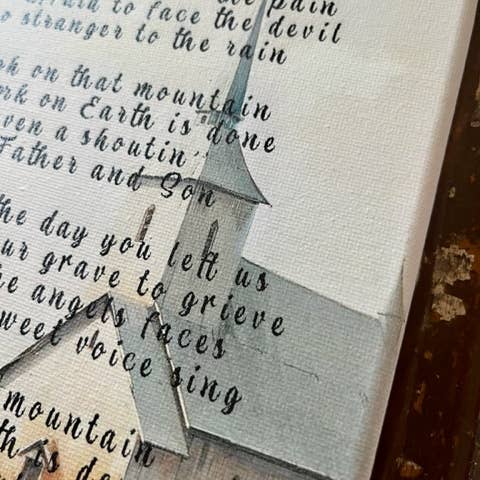 pain
fraid to face the devil
o stranger to the rain
gh on that mountain
ork on Earth is done
ven a shoutin'
Father and Son
he day you left us
ur grave to grieve
he angels faces
weet voice sing
mountain
th is do